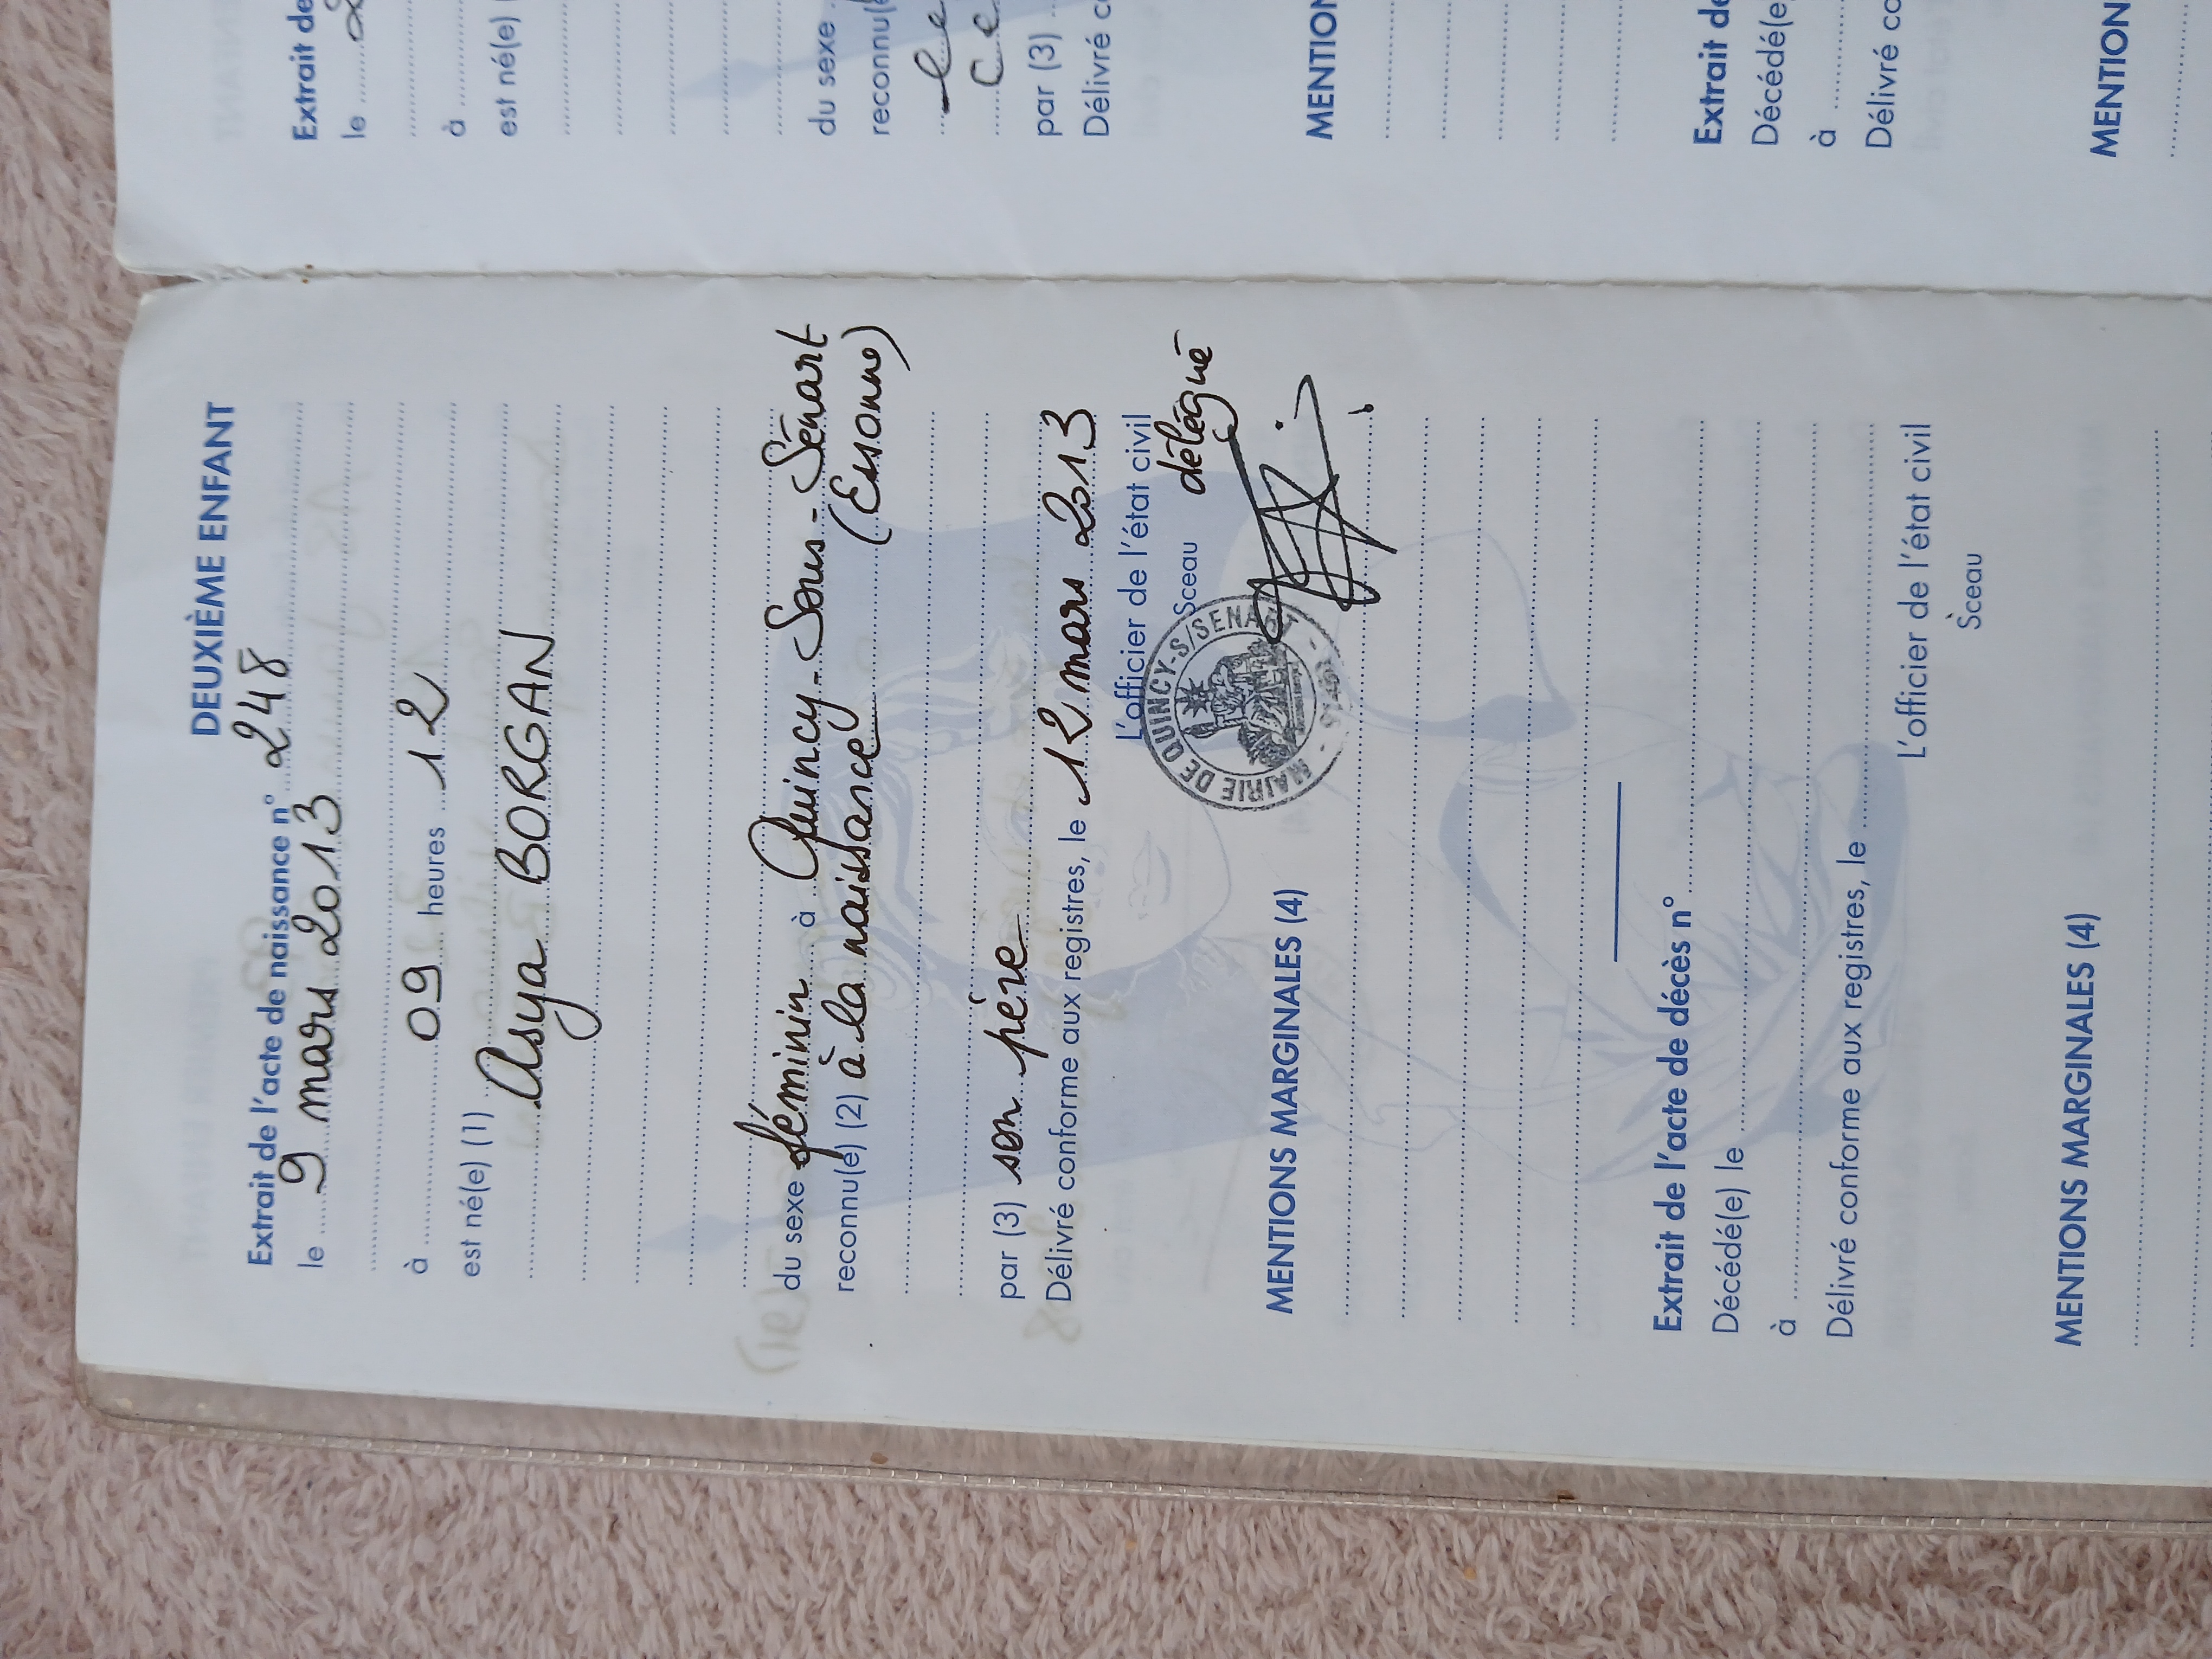 DEUXIÈME ENFANT
Extrait de l'acte de naissance n° 248
le 9 mars 2013
à 09 heures 12
est né(e) (1)
Asya BORGAN
du sexe féminin à Quincy-Sous-Sénart
reconnu(e) (2) à la naissance (Essonne)
par (3) son père
Délivré conforme aux registres, le 12 mars 2013
L'officier de l'état civil
Sceau délégué
MAIRIE DE QUINCY-S/SENART - 91480 -
MENTIONS MARGINALES (4)
Extrait de l'acte de décès n°
Décédé(e) le
à
Délivré conforme aux registres, le
L'officier de l'état civil
Sceau
MENTIONS MARGINALES (4)
Extrait de
le
à
est né(e)
du sexe
reconnu(e
par (3)
Délivré co
MENTION
Extrait de
Décédé(e)
à
Délivré co
MENTION